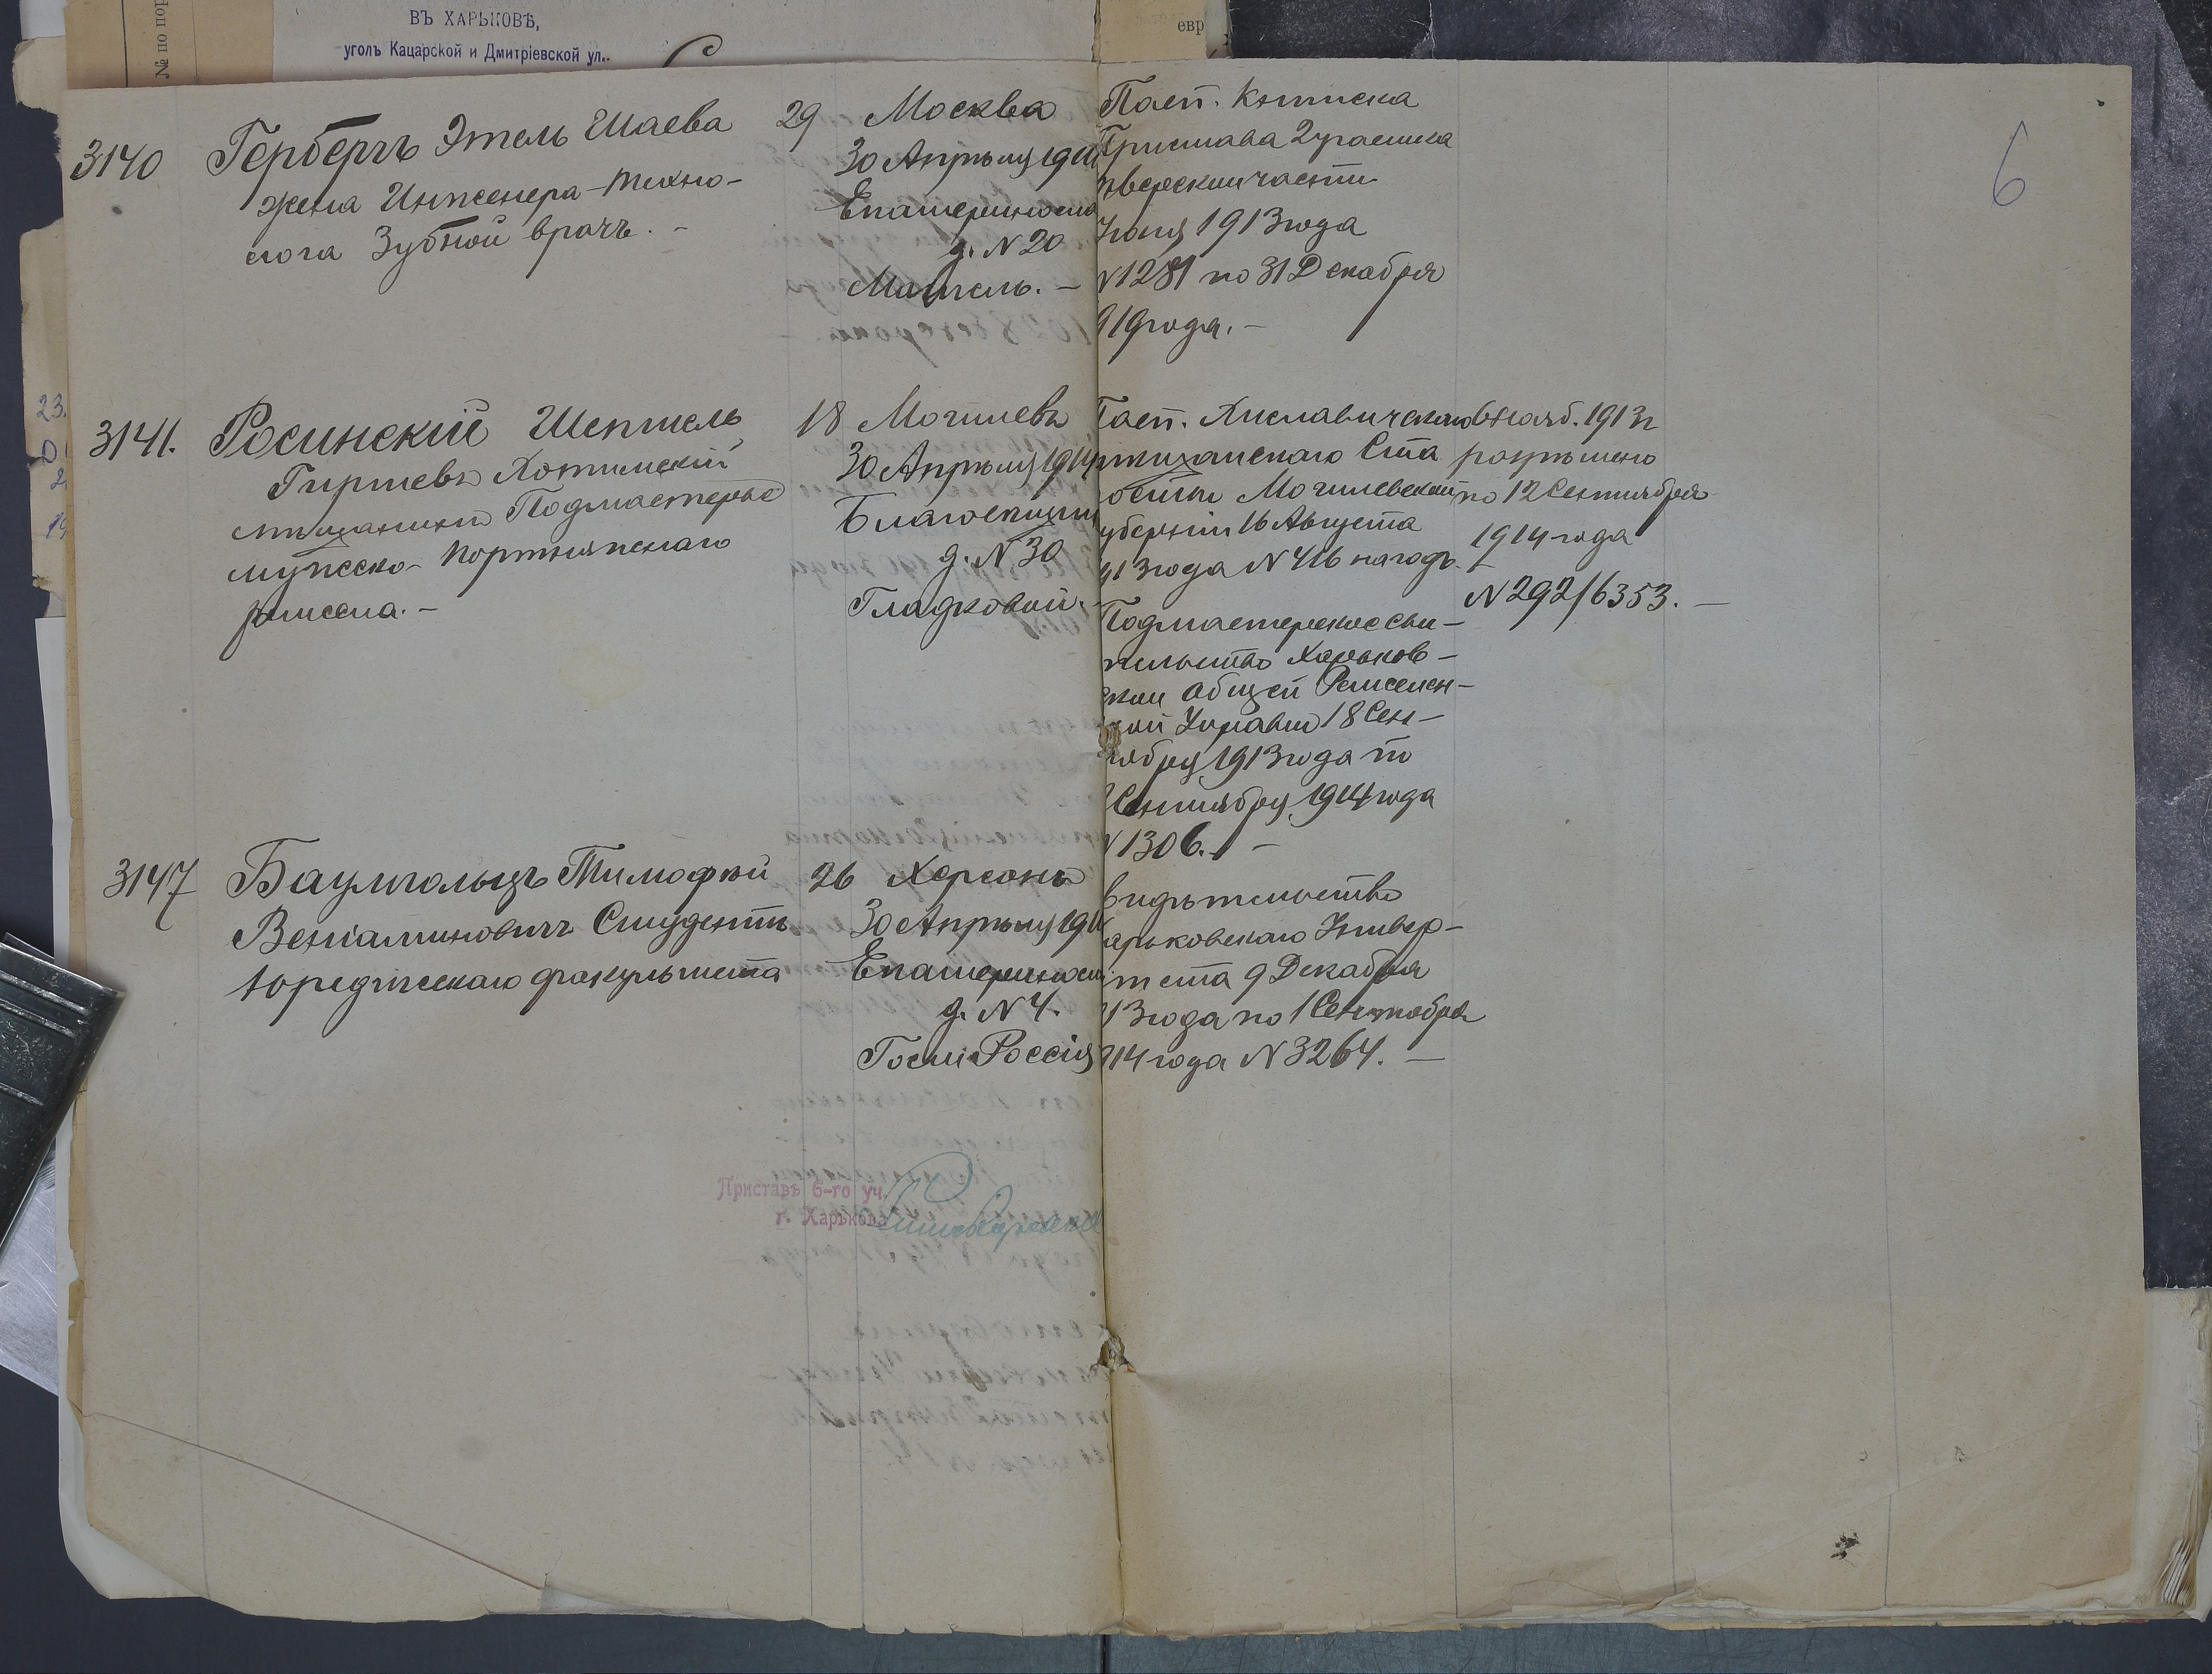 № по пор
ВЪ ХАРЬКОВѢ,
уголъ Кацарской и Дмитріевской ул.
евр
6
3140
Гербергъ Этель Шаева
жена Инженера-техно-
лога Зубной врачъ. -
29
Москва
30 Апрѣля 191
Екатеринос
д. № 20
Мотель. -
Пасп. Книжка
Пристава 2 участка
тверской части
Іюня 1913 года
№ 1281 по 31 Декабря
919 года. -
3141.
Росинскій
Гиршевъ Хотимскій
мѣщанинъ Подмастерье
мужско-портняжскаго
ремесла. -
18
Могилевъ
30 Апрѣля 1914
Благовѣщен
д. № 30
Гладковой.
Пасп. Хиславичскаго
мѣщанскаго Ста
росты Могилевской
губерніи 16 Августа
913 года № 416 на годъ.
Подмастерское сви-
тельство Харьков-
ской Общей Ремеслен-
ной Управы 18 Сен-
тября 1913 года по
Сентября 1914 года
№ 1306. -
6 Нояб. 1913 г
разрѣшено
по 12 Сентября
1914 года
№ 292/6353. -
3147
Баумгольцъ Тимофей
Веніаминовичъ Студентъ
юридическаго факультета
26
Херсонъ
30 Апрѣля 191
Екатеринос
д. № 4.
Гост. Россія
видѣтельство
арьковскаго Универ-
тета 9 Декабря
913 года по 1 Сентября
914 года № 3264. -
Приставъ 6-го уч.
г. Харькова